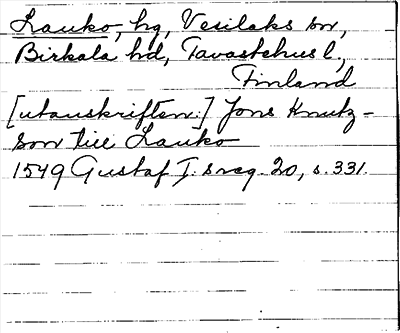 Lauko, hg, Vesilaks sn,
Birkala hd, Tavastehus l.,
Finland
[utanskriften:] Jons Knutz-
son till Lauko
1549 Gustaf I:s reg. 20, s. 331.